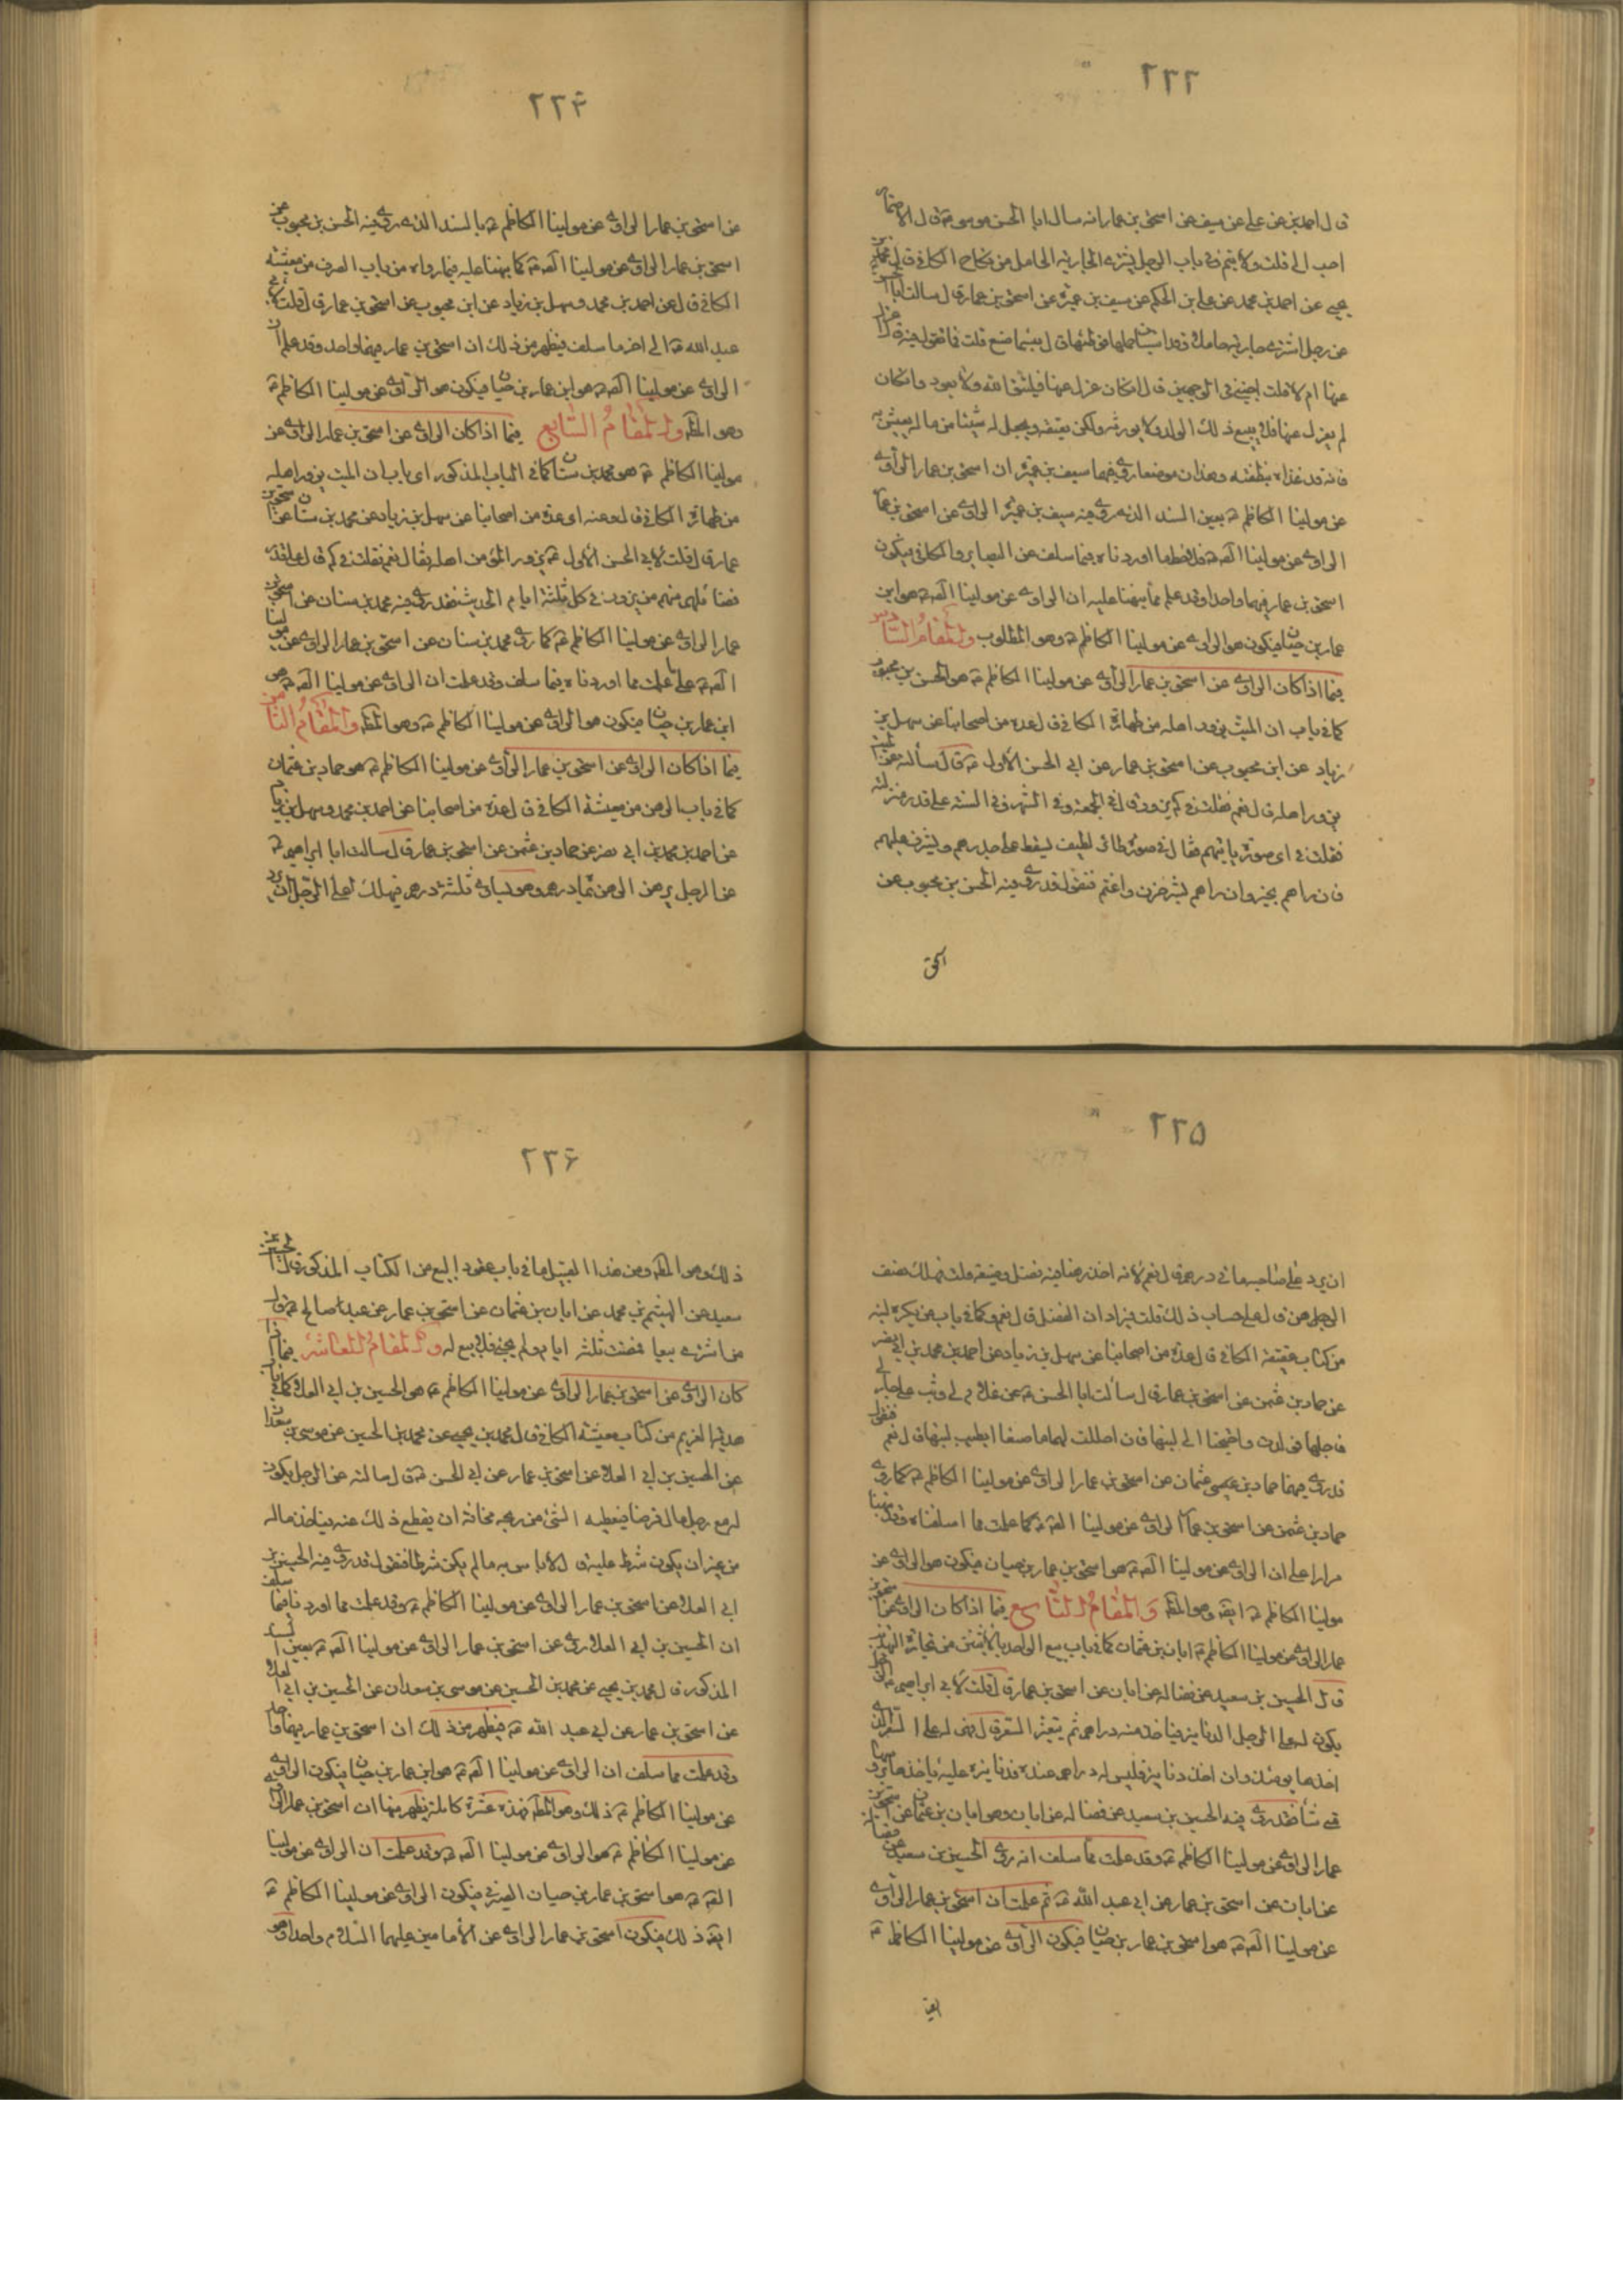 ٢٢٣
قال احمد بن عن علي عن سيف عن اسحق بن عمار انه سال ابا الحسن موسى ع قال
احب الي قلت ولا يتم في باب الرجل يشتري الجارية الحامل من نكاح الكافي قال محمد بن
يحيى عن احمد بن محمد عن علي بن الحكم عن سيف بن عميرة عن اسحق بن عمار قال سالت ابا الحسن
عن رجل اشترى جارية حاملا وقد استبان حملها فوطئها قال بئسما صنع قلت فما تقول فيه قال اعزل
عنها ام لا قلت اجبني في الوجهين قال ان كان عزل عنها فليتق الله ولا يعود وان كان
لم يعزل عنها فلا يبيع ذلك الولد ولا يورثه ولكن يعتقه ويجعل له شيئا من ماله يعيش به
فانه قد غذاه بنطفته وهذان موضعان روى فيهما سيف بن عميرة ان اسحق بن عمار الراوي
عن مولينا الكاظم ع بعين السند الذي روى فيه سيف بن عميرة الراوي عن اسحق بن عمار
الراوي عن مولينا الص ع فلاحظ ما اوردناه فيما سلف عن البصاير والكافي فيكون
اسحق بن عمار فيهما واحدا وقد علم مما نبهنا عليه ان الراوي عن مولينا الص ع هو ابن
عمار بن حيان فيكون هو الراوي عن مولينا الكاظم ع وهو المطلوب والمقام السادس
فيما اذا كان الراوي عن اسحق بن عمار الراوي عن مولينا الكاظم ع هو الحسن بن محبوب
كما في باب ان الميت يزور اهله من طهارة الكافي قال عدة من اصحابنا عن سهل بن
زياد عن ابن محبوب عن اسحق بن عمار عن ابي الحسن الاول ع قال سألته عن الميت
يزور اهله قال نعم فقلت في كم يزور قال في الجمعة وفي الشهر وفي السنة على قدر منزلته
فقلت في اي صورة ياتيهم فقال في صورة طائر لطيف ليسقط على جدرهم ويشرف عليهم
فان راهم بخير وان راهم بشر حزن واغتم فنقول قد روى فيه الحسن بن محبوب عن
اسحق
٢٢۴
عن اسحق بن عمار الراوي عن مولينا الكاظم ع بالسند الذي روى فيه الحسن بن محبوب عن
اسحق بن عمار الراوي عن مولينا الص ع كما نبهنا عليه فيما رواه من باب الصرف من معيشة
الكافي قال عن احمد بن محمد وسهل بن زياد عن ابن محبوب عن اسحق بن عمار قال قلت لابي
عبد الله ع الى اخر ما سلف فيظهر من ذلك ان اسحق بن عمار فيهما واحد وقد علم ان
الراوي عن مولينا الص ع هو ابن عمار بن حيان فيكون هو الراوي عن مولينا الكاظم ع
وهو المط والمقام السابع فيما اذا كان الراوي عن اسحق بن عمار الراوي عن
مولينا الكاظم ع هو محمد بن سنان كما في الباب المذكور اي باب ان الميت يزور اهله
من طهارة الكافي قال وعنه اي عدة من اصحابنا عن سهل بن زياد عن محمد بن سنان عن اسحق بن
عمار قال قلت لابي الحسن الاول ع يزور المؤمن اهله فقال نعم فقلت في كم قال على قدر
فضائلهم منهم من يزور في كل ثلثة ايام الحديث فقد روى فيه محمد بن سنان عن اسحق بن
عمار الراوي عن مولينا الكاظم ع كما روى محمد بن سنان عن اسحق بن عمار الراوي عن مولينا
الص ع على ما علمت مما اوردناه فيما سلف وقد علمت ان الراوي عن مولينا الص ع هو
ابن عمار بن حيان فيكون هو الراوي عن مولينا الكاظم ع وهو المط والمقام الثامن
فيما اذا كان الراوي عن اسحق بن عمار الراوي عن مولينا الكاظم ع هو حماد بن عثمان
كما في باب الرهن من معيشة الكافي قال عدة من اصحابنا عن احمد بن محمد وسهل بن زياد
عن احمد بن محمد بن ابي نصر عن حماد بن عثمن عن اسحق بن عمار قال سالت ابا ابراهيم ع
عن الرجل يرهن الرهن بمائة درهم وهو يساوي ثلثمائة درهم فيهلك اعلى الرجل ان يرد
٢٢۵
ان يرد على صاحبه مائتي درهم قال نعم لانه اخذ رهنا فيه فضل وضيعه قلت فهلك نصف
الرهن قال على حساب ذلك قلت فيرادان الفضل قال نعم وكما في باب من يكره لبنه
من كتاب عقيقة الكافي قال عدة من اصحابنا عن سهل بن زياد عن احمد بن محمد بن ابي نصر
عن حماد بن عثمن عن اسحق بن عمار قال سألت ابا الحسن ع عن غلام لي وثب على جارية لي
فاحبلها فولدت واحتجنا الى لبنها فان احللت لهما ما صنعا ايطيب لبنها قال نعم فنقول
قد روى فيهما حماد بن عيسى عثمان عن اسحق بن عمار الراوي عن مولينا الكاظم ع كما روى
حماد بن عثمن عن اسحق بن عمار الراوي عن مولينا الص ع كما علمت مما اسلفناه وقد نبهنا
مرارا على ان الراوي عن مولينا الص ع هو اسحق بن عمار بن حيان فيكون هو الراوي عن
مولينا الكاظم ع ايضا وهو المط والمقام التاسع فيما اذا كان الراوي عن اسحق بن
عمار الراوي عن مولينا الكاظم ع ابان بن عثمان كما في باب بيع الواحد بالاثنين من تجارة التهذيب
قال الحسين بن سعيد عن فضالة عن ابان عن اسحق بن عمار قال قلت لابي ابراهيم ع الرجل
يكون له على الرجل الدنانير فياخذ منه دراهم ثم يتغير السعر قال فهي له على السعر الذي
اخذها يومئذ وان اخذ دنانير فليس له دراهم عنده فدنانيره عليه ياخذها برؤسها
متى شاء فقد روى فيه الحسين بن سعيد عن فضالة عن ابان وهو ابان بن عثمان عن اسحق بن
عمار الراوي عن مولينا الكاظم ع وقد علمت مما سلف انه روى الحسين بن سعيد عن فضالة
عن ابان عن اسحق بن عمار عن ابي عبد الله ع ثم علمت ان اسحق بن عمار الراوي
عن مولينا الص ع هو اسحق بن عمار بن حيان فيكون الراوي عن مولينا الكاظم ع
ايضا
٢٢۶
ذلك وهو المط ومن هذا القبيل ما في باب عقود البيع من الكتاب المذكور قال الحسين بن
سعيد عن الهيثم بن محمد عن ابان بن عثمان عن اسحق بن عمار عن عبد صالح ع قال
من اشترى بيعا فمضت ثلثة ايام ولم يجئ فلا بيع له والمقام العاشر فيما اذا
كان الراوي عن اسحق بن عمار الراوي عن مولينا الكاظم ع هو الحسين بن ابي العلا كما في باب
هدية الغريم من كتاب معيشة الكافي قال محمد بن يحيى عن محمد بن الحسين عن موسى بن سعدان
عن الحسين بن ابي العلا عن اسحق بن عمار عن ابي الحسن ع قال سالته عن الرجل يكون
له مع رجل مال قرضا فيعطيه الشئ من ربحه مخافة ان يقطع ذلك عنه فياخذ ماله
من غير ان يكون شرط عليه قال لا باس به ما لم يكن شرطا فنقول قد روى فيه الحسين بن
ابي العلا عن اسحق بن عمار الراوي عن مولينا الكاظم ع وقد علمت مما اوردنا فيما سلف
ان الحسين بن ابي العلا روى عن اسحق بن عمار الراوي عن مولينا الص ع بعين السند
المذكور قال محمد بن يحيى عن محمد بن الحسين عن موسى بن سعدان عن الحسين بن ابي العلا
عن اسحق بن عمار عن ابي عبد الله ع فيظهر من ذلك ان اسحق بن عمار فيهما واحد
وقد علمت مما سلف ان الراوي عن مولينا الص ع هو ابن عمار بن حيان فيكون الراوي
عن مولينا الكاظم ع ذلك وهو المط فهذه عشرة كاملة يظهر منها ان اسحق بن عمار الراوي
عن مولينا الكاظم ع هو الراوي عن مولينا الص ع وقد علمت ان الراوي عن مولينا
الص ع هو اسحق بن عمار بن حيان الصيرفي فيكون الراوي عن مولينا الكاظم ع
ايضا ذلك فيكون اسحق بن عمار الراوي عن الامامين عليهما السلام واحدا وهو